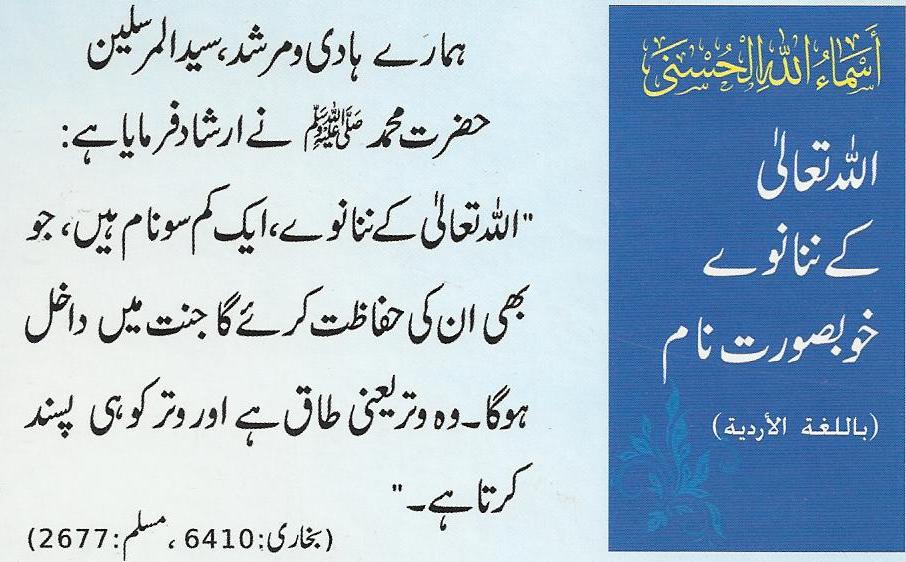 أَسْمَاءُ اللهِ الْحُسْنَى
اللہ تعالیٰ
کے ننانوے
خوبصورت نام
(باللغة الأردية)
ہمارے ہادی و مرشد، سید المرسلین
حضرت محمد ﷺ نے ارشاد فرمایا ہے:
"اللہ تعالیٰ کے ننانوے، ایک کم سو نام ہیں، جو
بھی ان کی حفاظت کرئے گا جنت میں داخل
ہوگا۔ وہ وتر یعنی طاق ہے اور وتر کو ہی پسند
کرتا ہے۔"
(بخاری: 6410، مسلم: 2677)